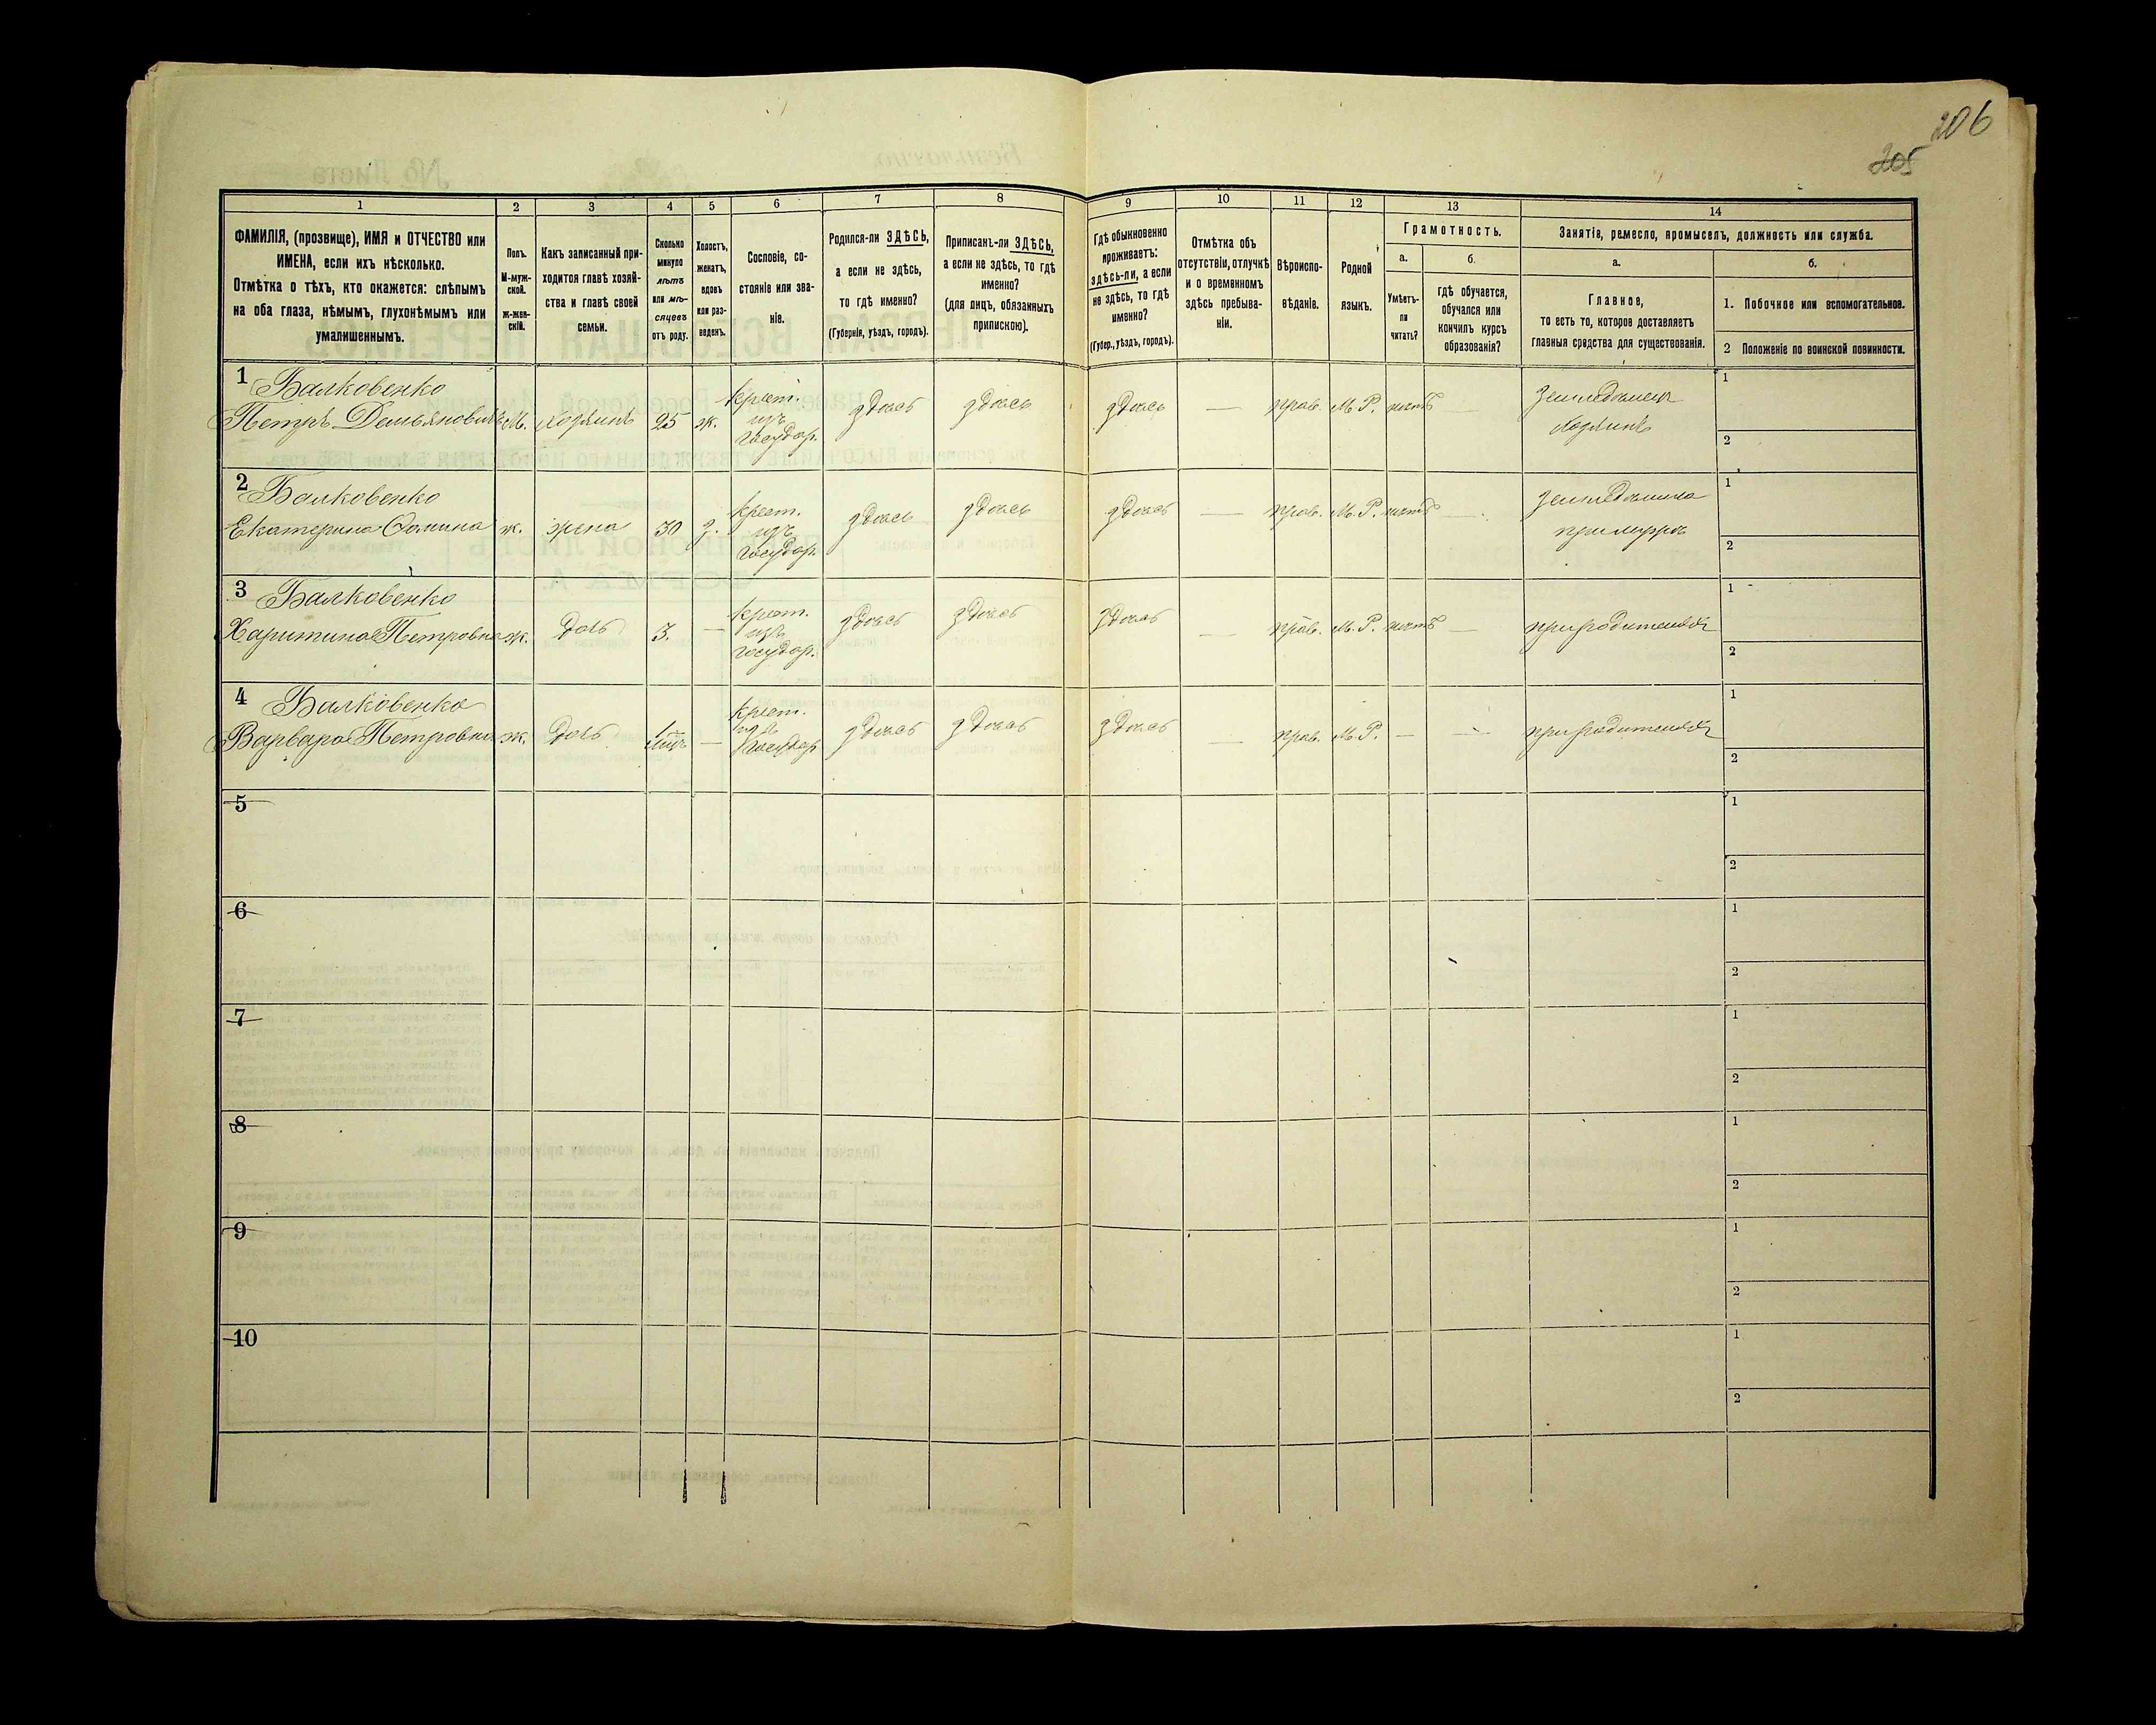 206
205
1
2
3
4
5
6
7
8
9
10
11
12
13
14
ФАМИЛІЯ, (прозвище), ИМЯ и ОТЧЕСТВО или
ИМЕНА, если ихъ нѣсколько.
Отмѣтка о тѣхъ, кто окажется: слѣпымъ
на оба глаза, нѣмымъ, глухонѣмымъ или
умалишеннымъ.
Полъ.
М-муж-
ской.
Ж-жен-
скій.
Какъ записанный при-
ходится главѣ хозяй-
ства и главѣ своей
семьи.
Сколько
минуло
лѣтъ
или мѣ-
сяцевъ
отъ роду.
Холостъ,
женатъ,
вдовъ
или раз-
веденъ.
Сословіе, со-
стояніе или зва-
ніе.
Родился-ли ЗДѢСЬ,
а если не здѣсь,
то гдѣ именно?
(Губернія, уѣздъ, городъ).
Приписанъ-ли ЗДѢСЬ,
а если не здѣсь, то гдѣ
именно?
(для лицъ, обязанныхъ
припискою).
Гдѣ обыкновенно
проживаетъ:
здѣсь-ли, а если
не здѣсь, то гдѣ
именно?
(Губер., уѣздъ, городъ).
Отмѣтка объ
отсутствіи, отлучкѣ
и о временномъ
здѣсь пребыва-
ніи.
Вѣроиспо-
вѣданіе.
Родной
языкъ.
Грамотность.
а.
Умѣетъ-
ли
читать?
б.
гдѣ обучается,
обучался или
кончилъ курсъ
образованія?
Занятія, ремесло, промыселъ, должность или служба.
а.
Главное,
то есть то, которое доставляетъ
главныя средства для существованія.
б.
1. Побочное или вспомогательное.
2 Положеніе по воинской повинности.
1 Балковенко
Петръ Демьяновичъ М. хозяинъ 25 ж. крест. изъ государ. здѣсь здѣсь здѣсь — прав. М. Р. нѣтъ — Земледѣлецъ хозяинъ 1 2
2 Балковенко
Екатерина Фомина ж. жена 30 з. крест. изъ государ. здѣсь здѣсь здѣсь — прав. М. Р. нѣтъ — земледѣлица при мужѣ 1 2
3 Балковенко
Харитина Петровна ж. дочь 3. — крест. изъ государ. здѣсь здѣсь здѣсь — прав. М. Р. нѣтъ — при родителяхъ 1 2
4 Балковенко
Варвара Петровна ж. дочь — крест. изъ государ. здѣсь здѣсь здѣсь — прав. М. Р. — — при родителяхъ 1 2
5 1 2
6 1 2
7 1 2
8 1 2
9 1 2
10 1 2